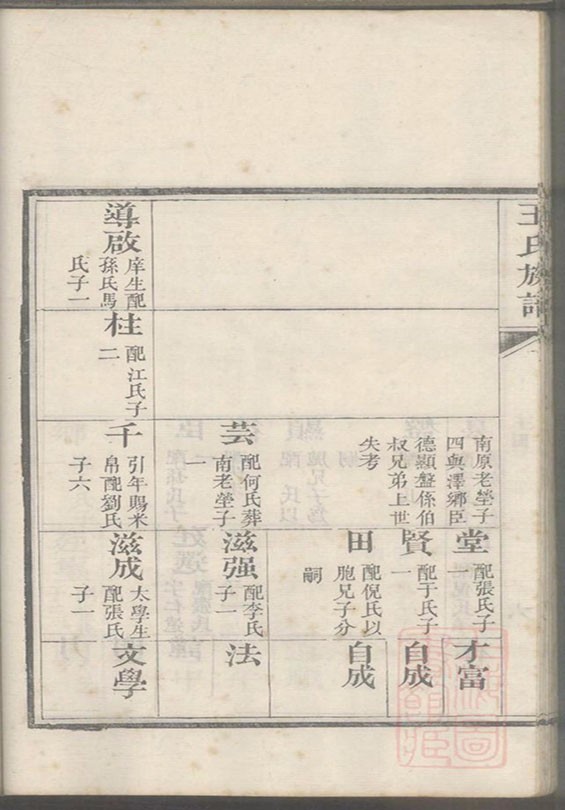 王氏族譜
南原老塋子
四與澤鄉臣
德顯盤係伯
叔兄弟上世
失考
堂
配張氏子
才富
賢
配于氏子
一
自成
田
配倪氏以
胞兄子分
嗣
自成
芸
配何氏葬
南老塋子
一
滋强
配李氏
子一
法
導啟
庠生配
孫氏馬
氏子一
柱
配江氏子
二
千
引年賜米
帛配劉氏
子六
滋成
太學生
配張氏
子一
文學